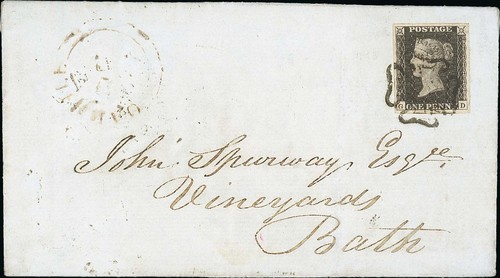 POSTAGE
ONE PENNY
D
John Spurway Esqre.
Vineyards
Bath